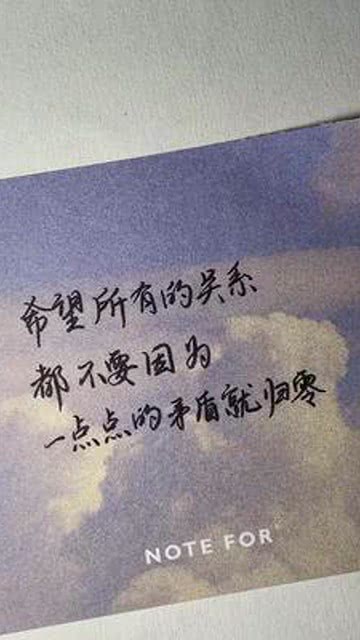 希望所有的关系
都不要因为
一点点的矛盾就归零
NOTE FOR